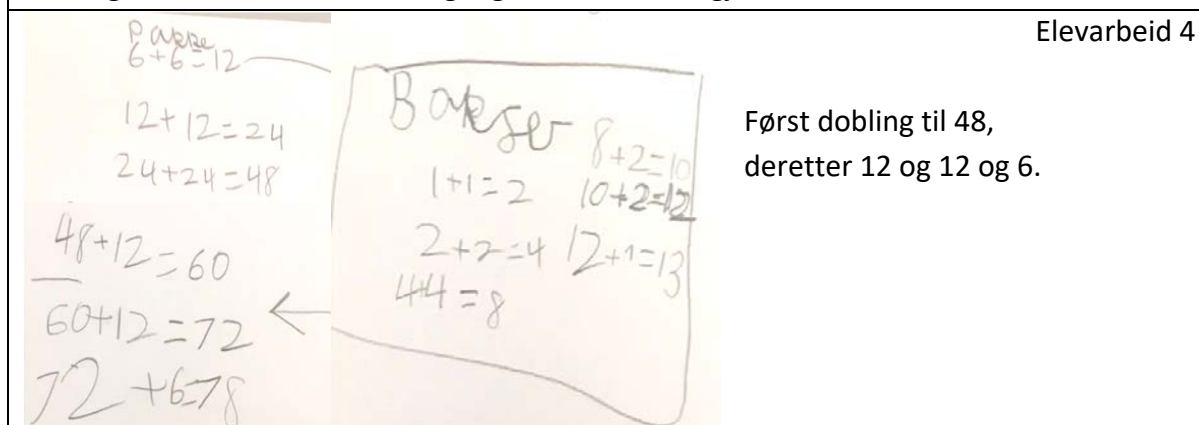 Elevarbeid 4
Pakke
6+6=12
12+12=24
24+24=48
48+12=60
60+12=72
72+6=78
Bokser
1+1=2
2+2=4
4+4=8
8+2=10
10+2=12
12+1=13
Først dobling til 48,
deretter 12 og 12 og 6.